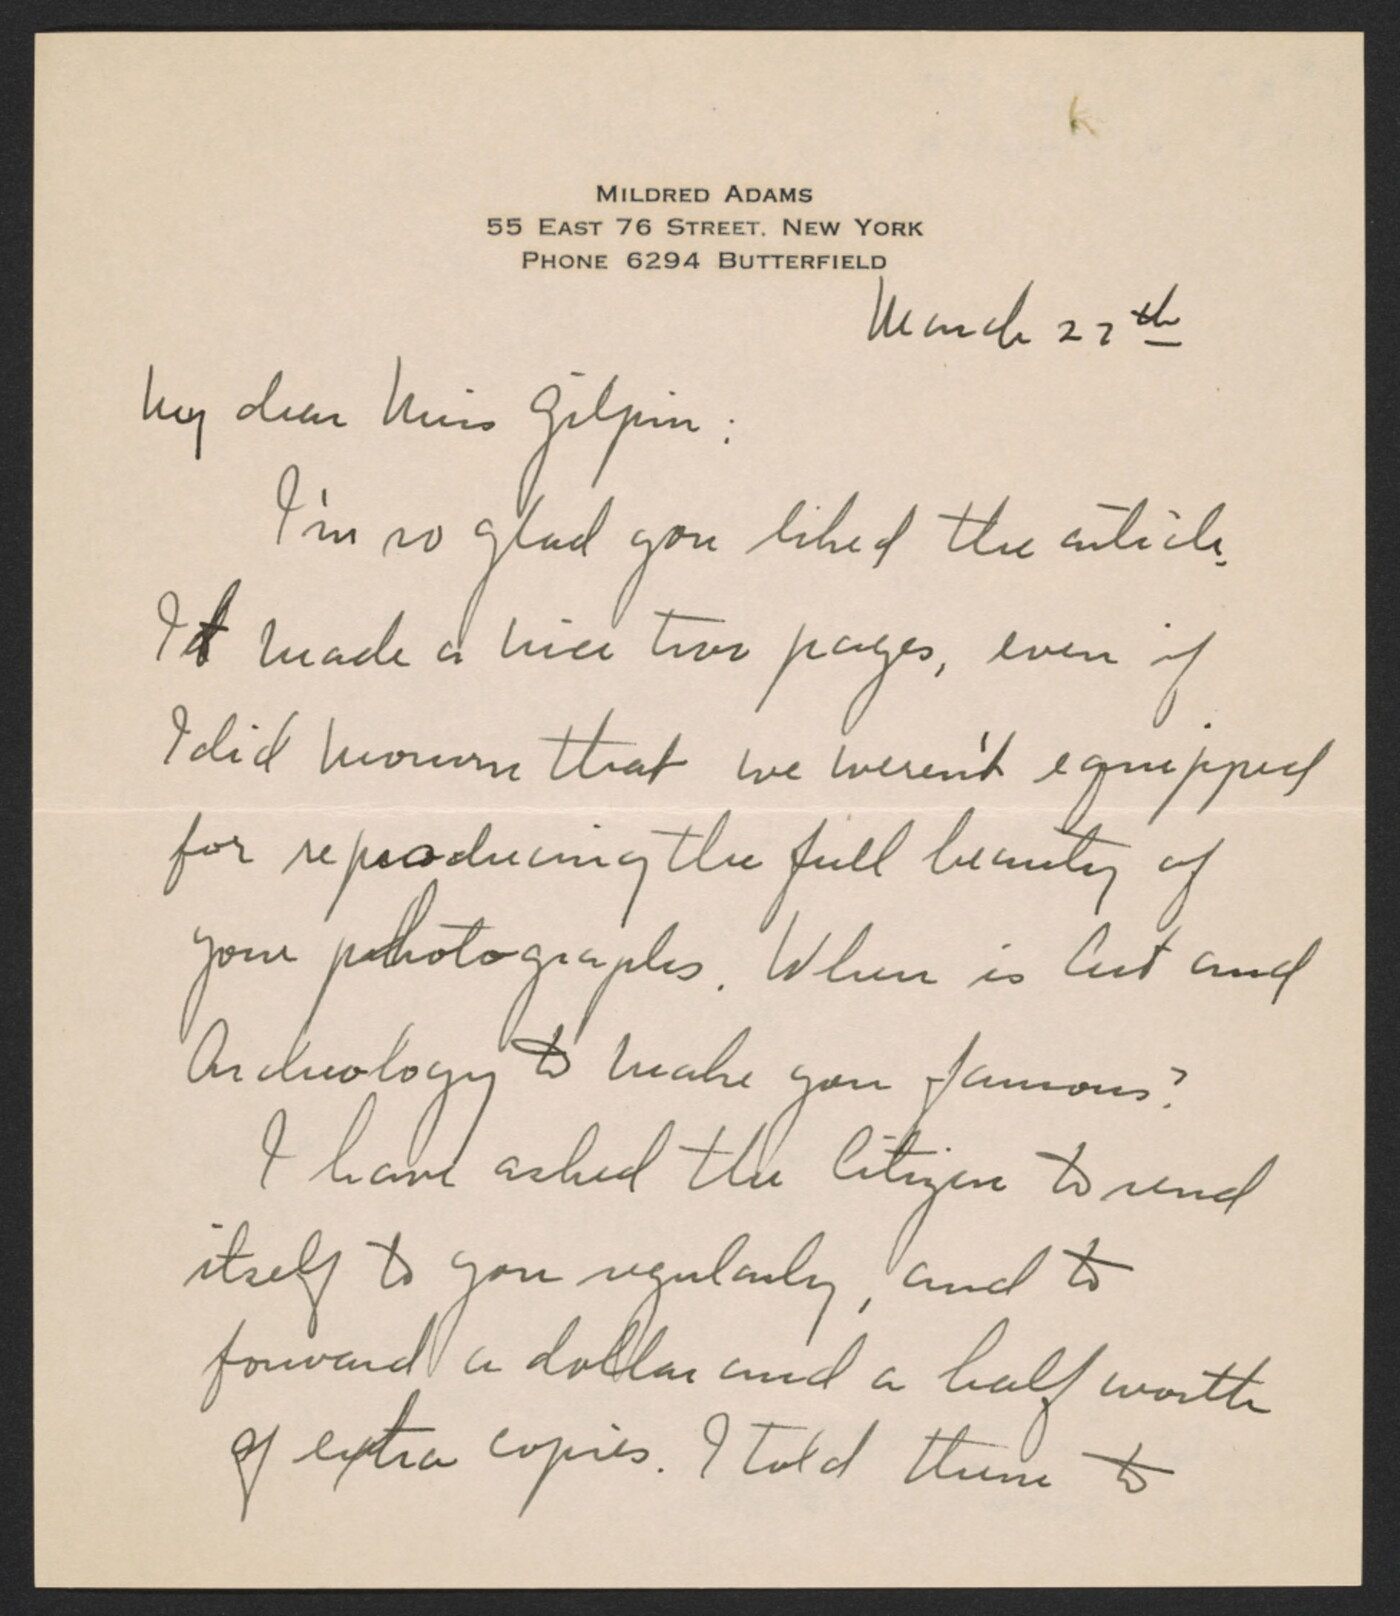 MILDRED ADAMS
55 EAST 76 STREET. NEW YORK
PHONE 6294 BUTTERFIELD
March 27th
My dear Miss Gilpin:
I'm so glad you liked the article.
It made a nice two pages, even if
I did mourn that we weren't equipped
for reproducing the full beauty of
your photographs. When is Art and
Archeology to make you famous?
I have asked the Citizen to send
itself to you regularly, and to
forward a dollar and a half worth
of extra copies. I told them to